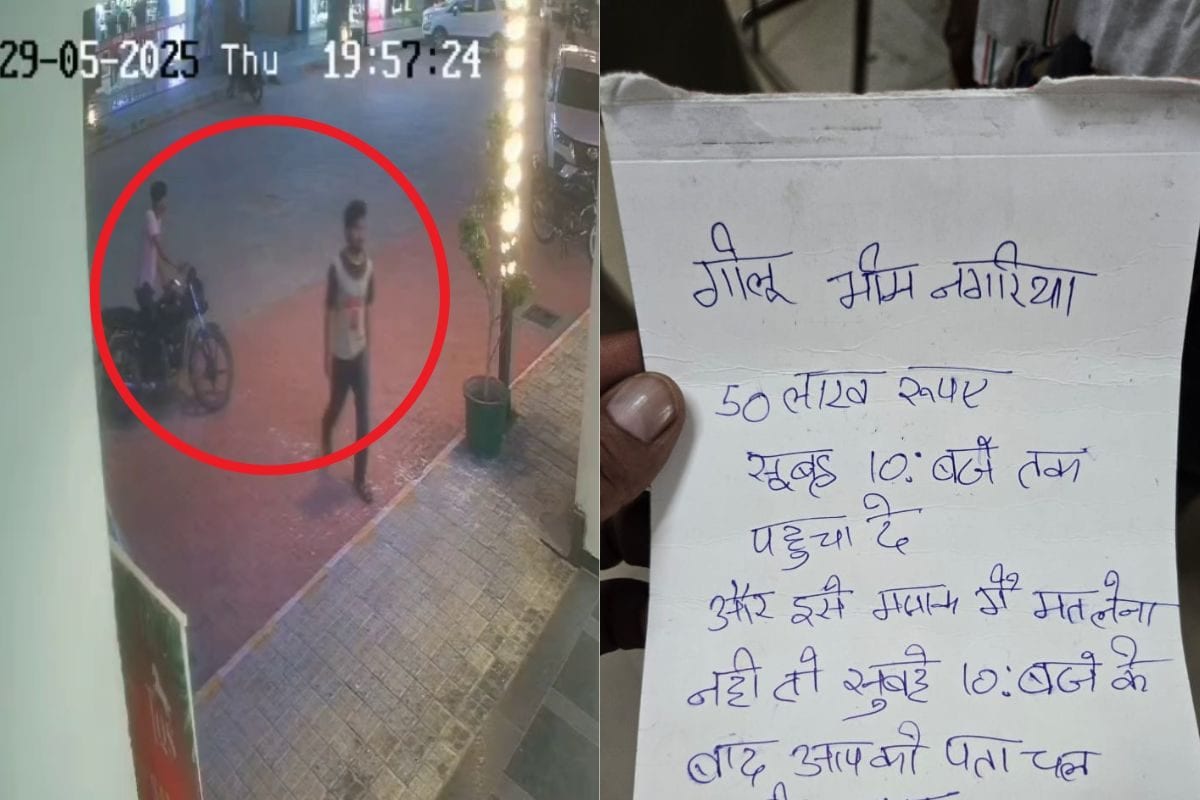 29-05-2025 Thu 19:57:24
गोलू भीम नगरिया
50 लाख रूपए
सुबह 10:बजे तक
पहुचा दे
और इसे मजाक में मत लेना
नही तो सुबहे 10:बजे के
बाद आपको पता चल